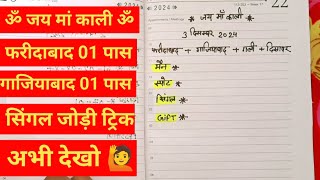 ॐ जय मां काली ॐ
फरीदाबाद 01 पास
गाजियाबाद 01 पास
सिंगल जोड़ी ट्रिक
अभी देखो
2024
22
* जय माँ काली *
3 दिसम्बर 2024
फरीदाबाद + गाजियाबाद + गली + दिसावर
मैन *
सपोट *
सिंगल *
GIFT *